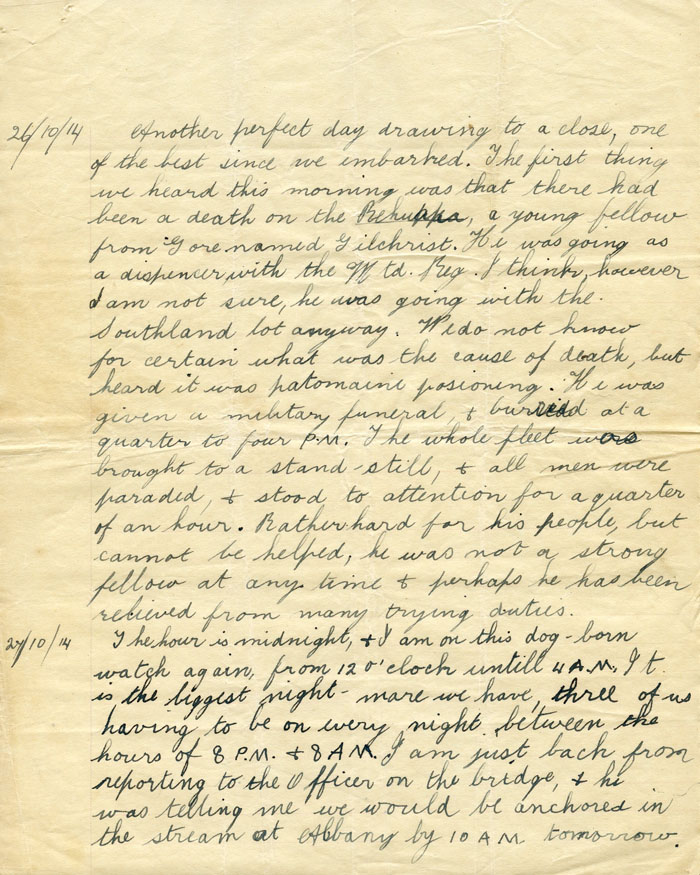 26/10/14 Another perfect day drawing to a close, one
of the best since we embarked. The first thing
we heard this morning was that there had
been a death on the , a young fellow
from Gore named Gilchrist. He was going as
a dispencer, with the Mtd. Reg. I think, however
I am not sure, he was going with the
Southland lot anyway. We do not know
for certain what was the cause of death, but
heard it was patomaine posioning. He was
given a military funeral, & buried at a
quarter to four P.M. The whole fleet were
brought to a stand-still, & all men were
paraded, & stood to attention for a quarter
of an hour. Rather hard for his people, but
cannot be helped, he was not a strong
fellow at any time & perhaps he has been
relieved from many trying duties.
27/10/14 The hour is midnight, & I am on this dog-born
watch again, from 12 o'clock untill 4 A.M. It
is the biggest night-mare we have, three of us
having to be on every night between the
hours of 8 P.M. & 8 A.M. I am just back from
reporting to the Officer on the bridge, & he
was telling me we would be anchored in
the stream at Albany by 10 A.M. tomorrow.